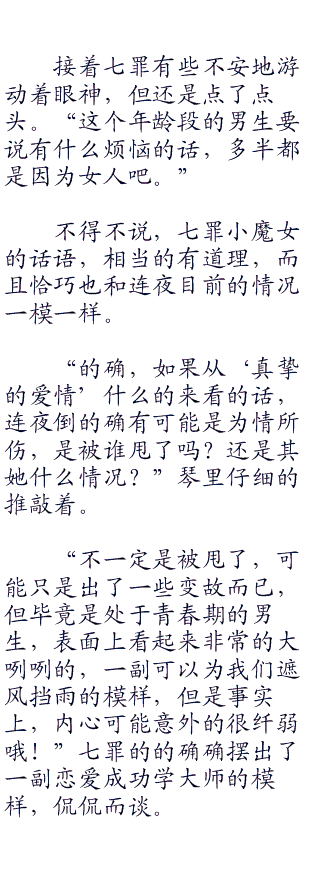 接着七罪有些不安地游
动着眼神，但还是点了点
头。“这个年龄段的男生要
说有什么烦恼的话，多半都
是因为女人吧。”
不得不说，七罪小魔女
的话语，相当的有道理，而
且恰巧也和连夜目前的情况
一模一样。
“的确，如果从‘真挚
的爱情’什么的来看的话，
连夜倒的确有可能是为情所
伤，是被谁甩了吗？还是其
她什么情况？”琴里仔细的
推敲着。
“不一定是被甩了，可
能只是出了一些变故而已，
但毕竟是处于青春期的男
生，表面上看起来非常的大
咧咧的，一副可以为我们遮
风挡雨的模样，但是事实
上，内心可能意外的很纤弱
哦！”七罪的的确确摆出了
一副恋爱成功学大师的模
样，侃侃而谈。